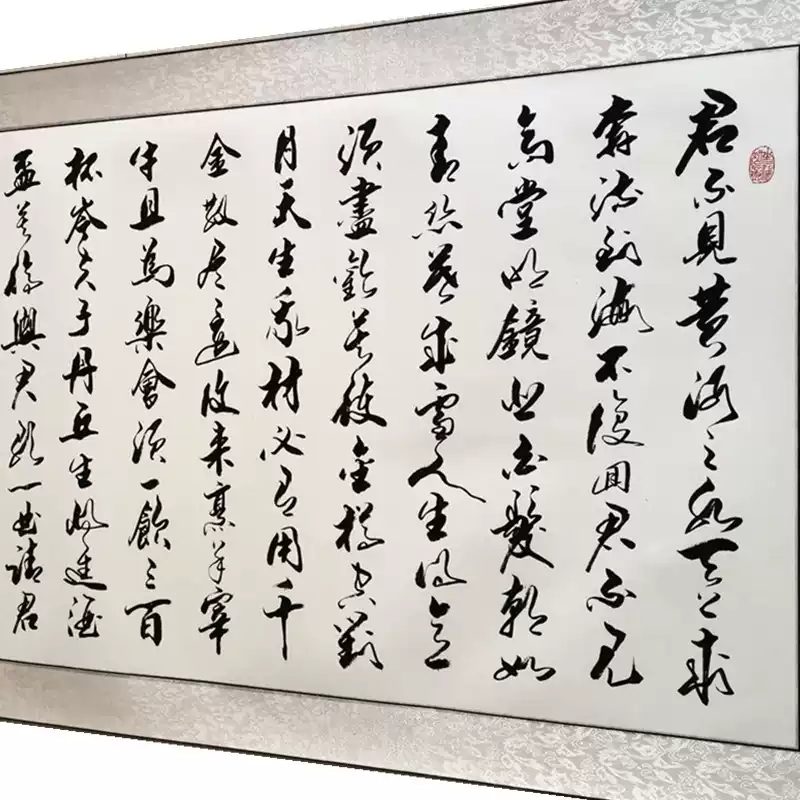 君不見黄河之水天上來
奔流到海不復回君不見
高堂明鏡悲白髮朝如
青絲暮成雪人生得意
須盡歡莫使金樽空對
月天生我材必有用千
金散尽還復来烹羊宰
牛且為樂會須一飲三百
杯岑夫子丹丘生將進酒
盃莫停與君歌一曲請君